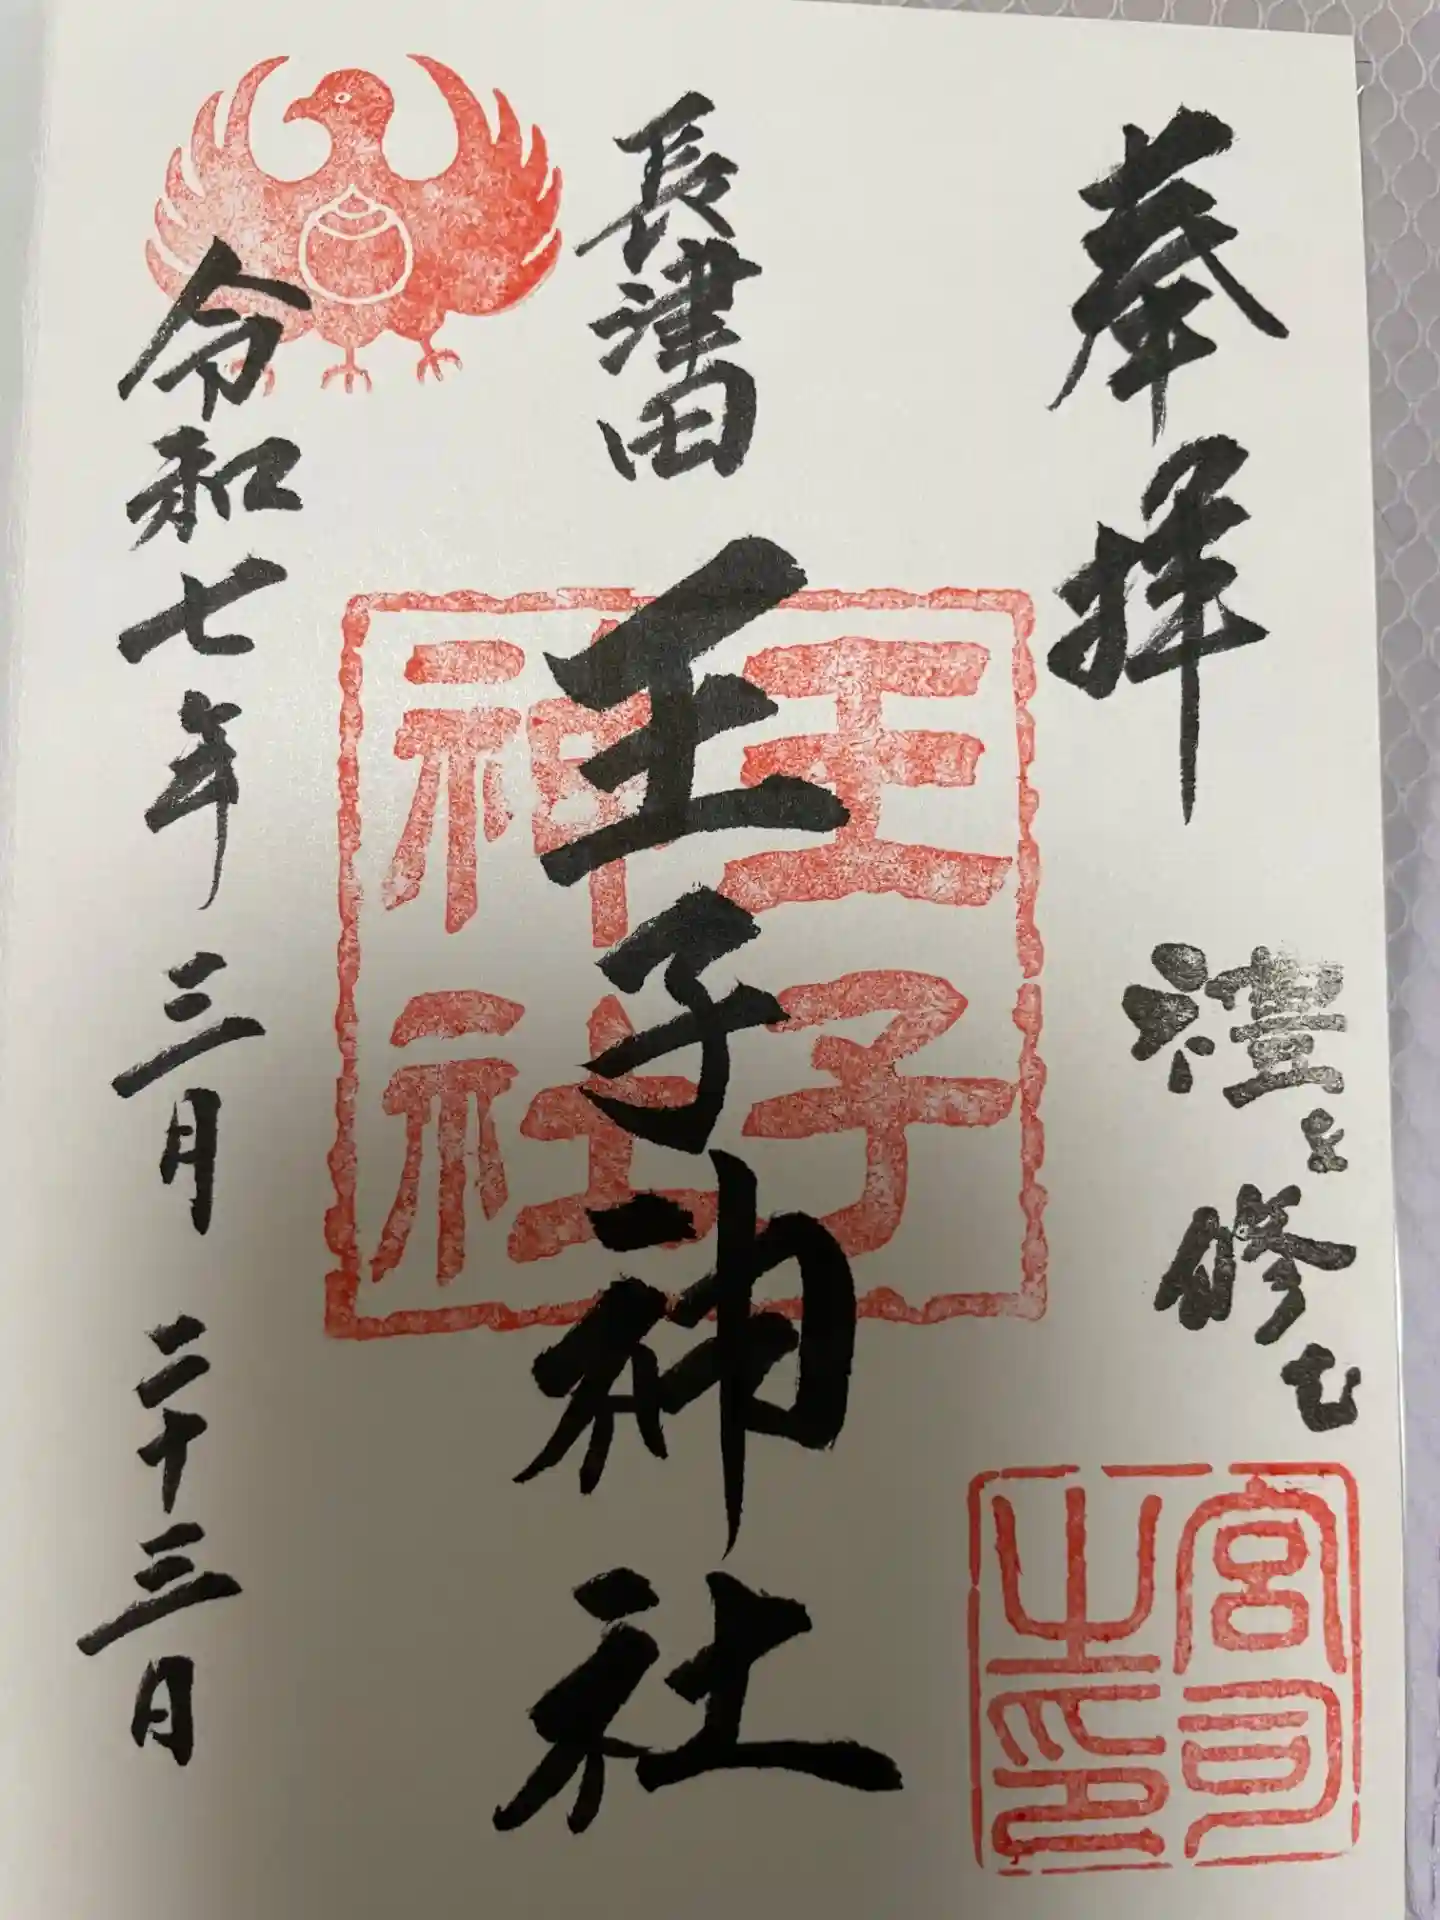 奉拝
禮を修む
宮司之印
長津田
王子神社
王子神社
令和七年三月二十三日